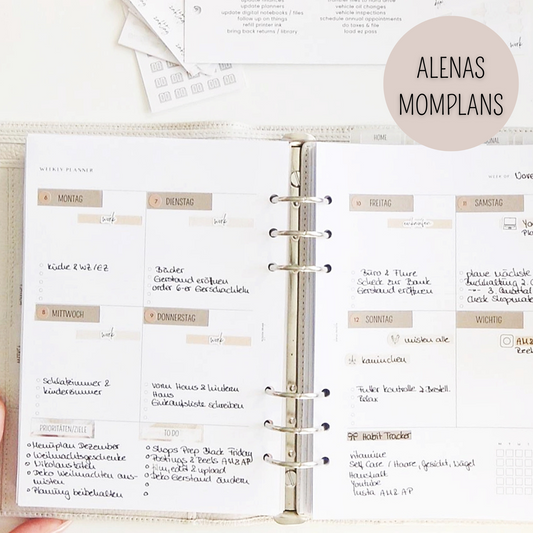 update planners
update digital notebooks / files
follow up on things
refill printer ink
bring back returns / library
vehicle oil changes
vehicle inspections
schedule annual appointments
do taxes & files
load es pass
work
ALENAS
MOMPLANS
HOME
WEEKLY PLANNER
WEEK OF:
6 MONTAG
work
Küche & WZ/EZ
7 DIENSTAG
work
Bäder
Eierstand eröffnen
order 6-er Eierschachteln
8 MITTWOCH
work
Schlafzimmer &
Kinderzimmer
9 DONNERSTAG
work
vorm Haus & hinterm
Haus
Einkaufsliste schreiben
PRIORITÄTEN/ZIELE
Menüplan Dezember
Weihnachtsgeschenke
Nikolaustüten
Deko Weihnachten aus-
misten
Planung beibehalten
TO DO
Shops Prep Black Friday
Postings & Reels AM & AP
film, edit & upload
Deko Eierstand ändern
10 FREITAG
Büro & Flure
Scheck zur Bank
Eierstand eröffnen
11 SAMSTAG
plane nächste
Buchhaltung 2.
3. Quartal
Check Shopmate
12 SONNTAG
misten alle
Kaninchen
Futter Kontrolle & Bestell.
Relax
WICHTIG
AM &
Reels
BP Habit Tracker
Vitamine
Self Care / Haare, Gesicht, Nägel
Haushalt
Youtube
Insta AM & AP